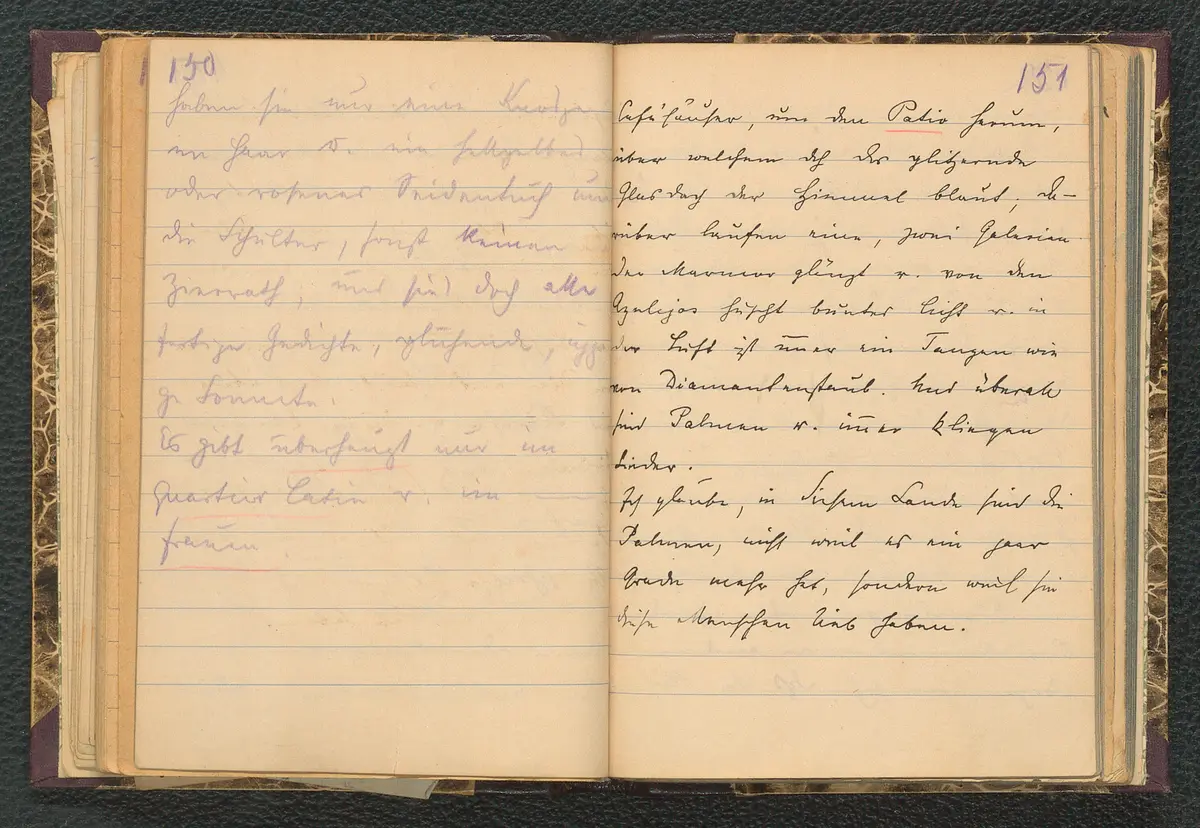 150
haben sie nur eine Knospe
im Haar o. ein hellgelbes
oder rosenes Seidentuch um
die Schulter, sonst keinen
Zierrath, und sind doch alle
fertige Gedichte, glühende, üppi
ge Sonnete.
Es gibt überhaupt nur im
Quartier Latin u. im
Frauen
151
Caféhäuser, um den Patio herum,
über welchem dch das glitzernde
Glasdach der Himmel blaut; da-
rüber laufen eine, zwei Galerien
der Marmor glänzt u. von den
Azulejos huscht buntes Licht u. in
der Luft ist im̄er ein Tanzen wie
von Diamantenstaub. Und überall
sind Palmen u. im̄er klingen
Lieder.
Ich glaube, in diesem Lande sind die
Palmen, nicht weil es ein paar
Grade mehr hat, sondern weil sie
diese Menschen lieb haben.